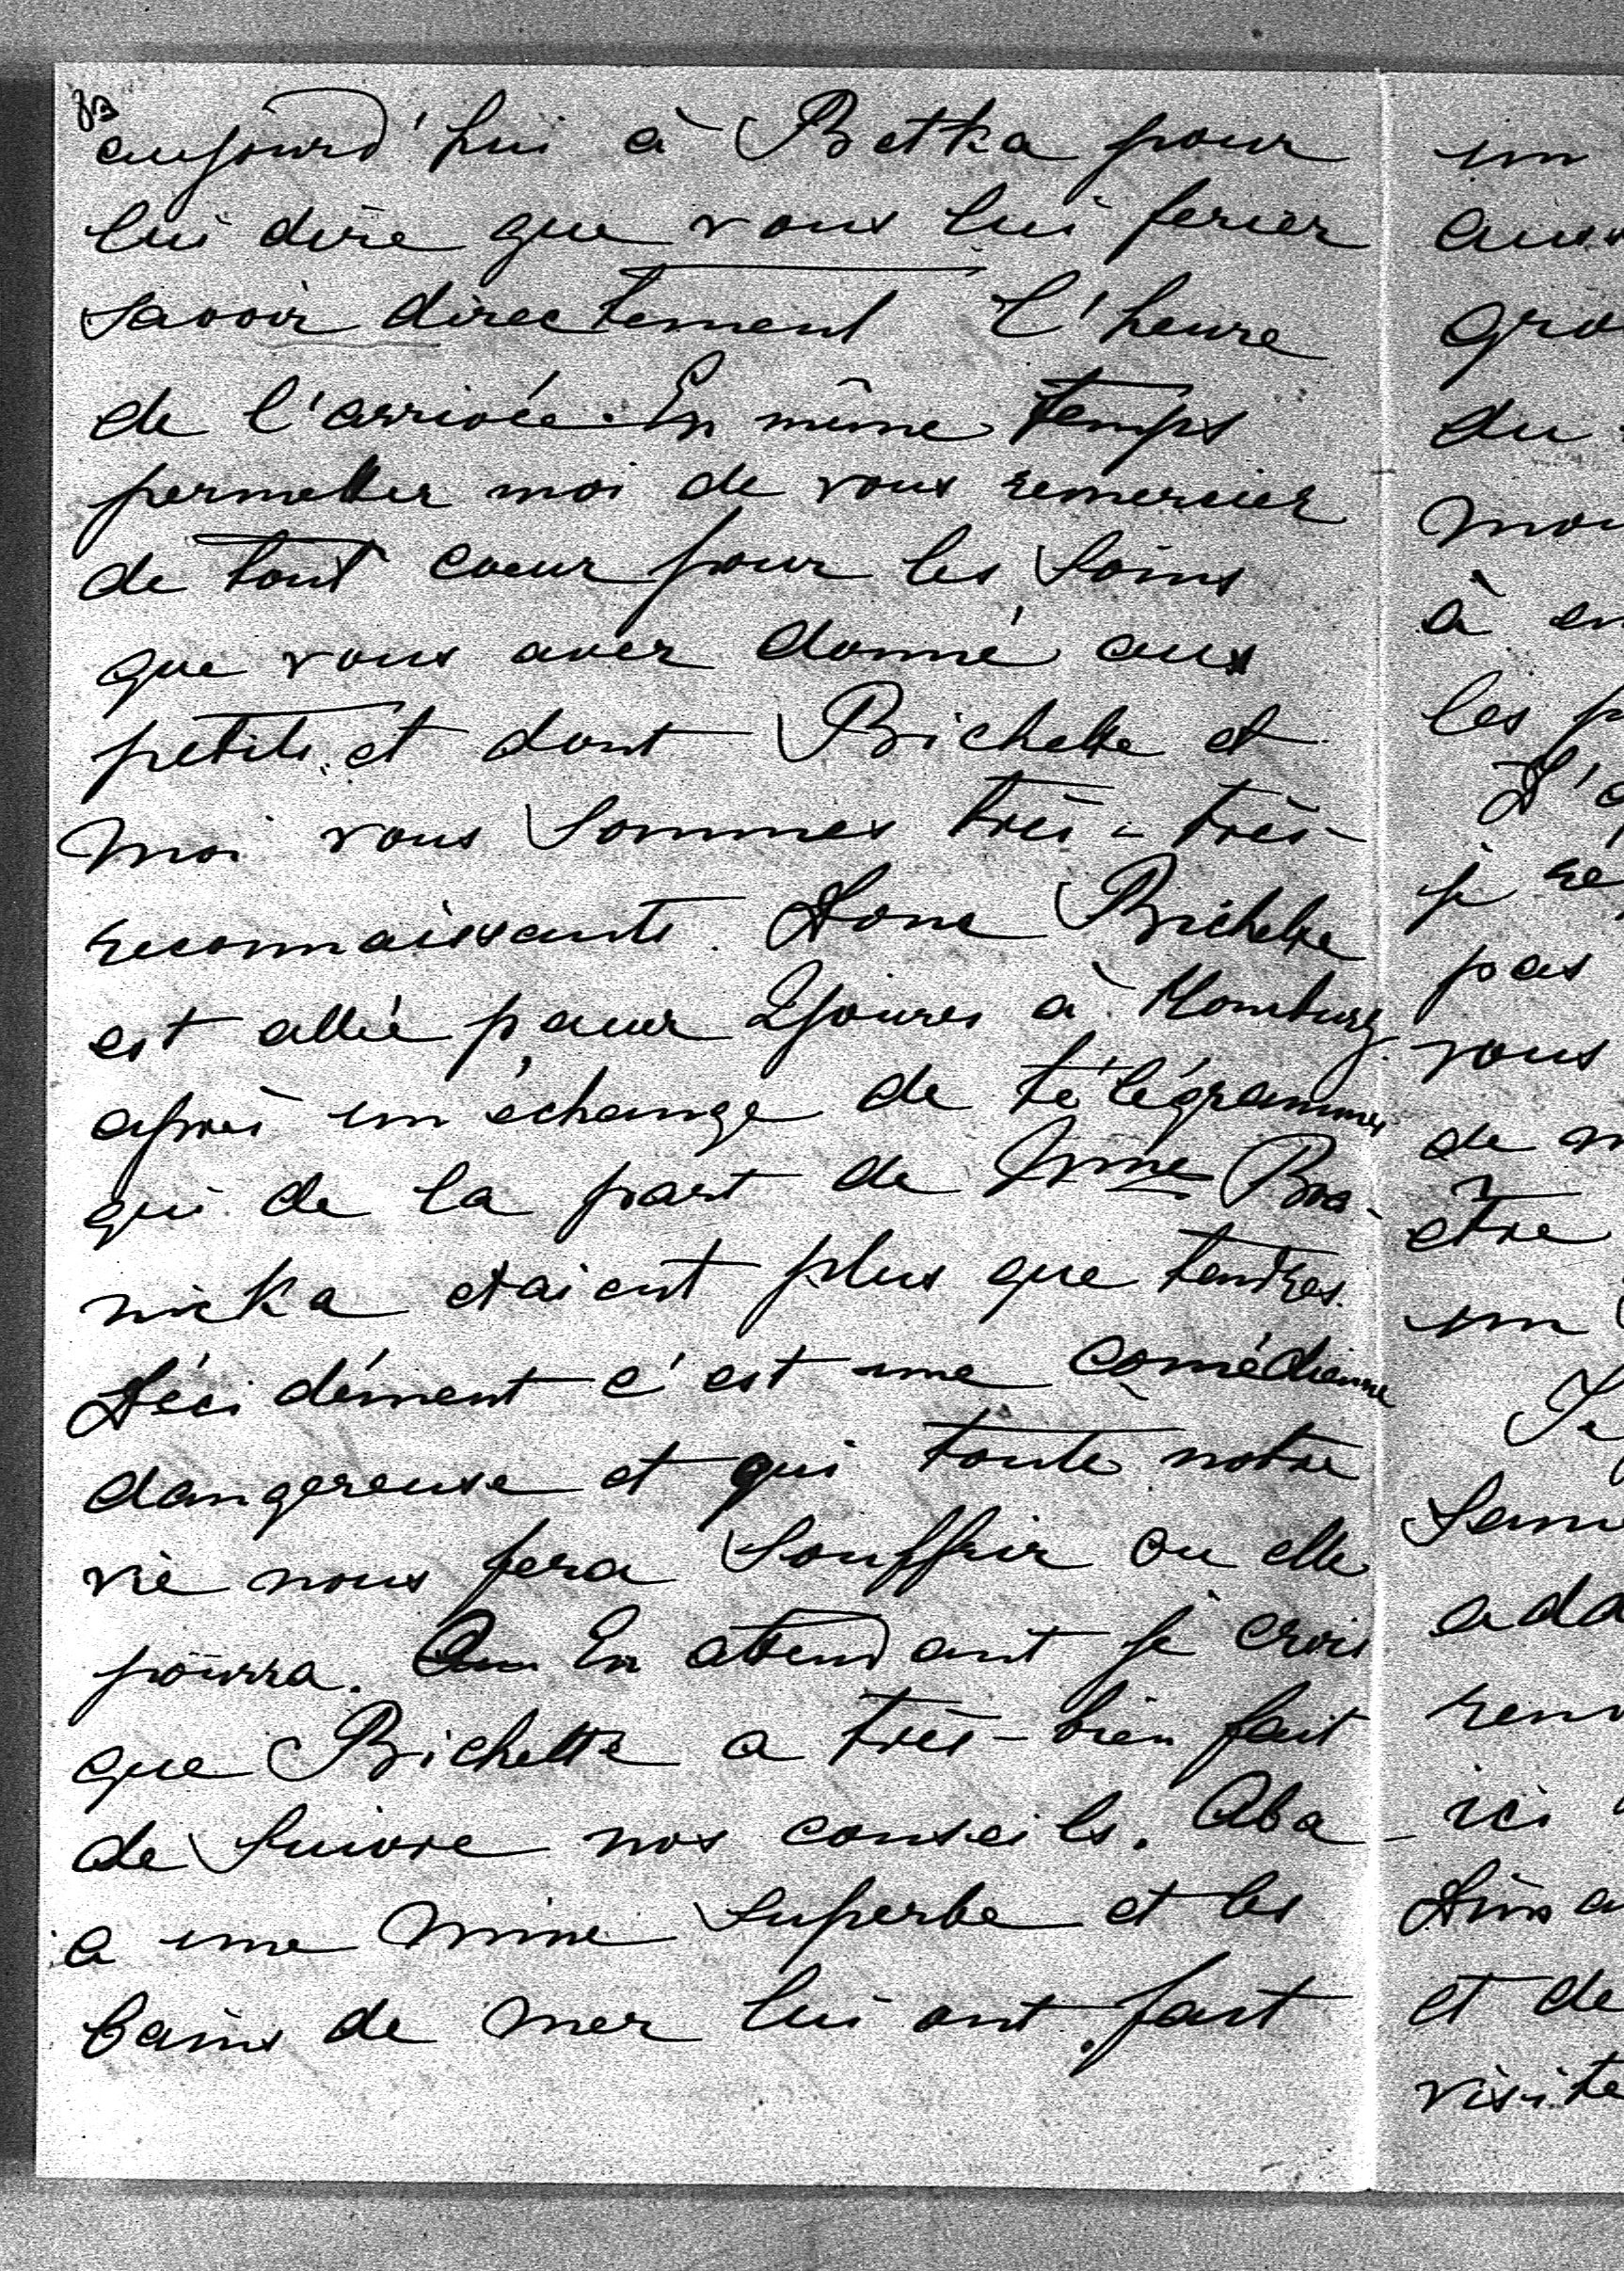 aujourd'hui à Betka pour
lui dire que vous lui feriez
savoir directement l'heure
de l'arrivée. En même temps
permettez moi de vous remercier
de tout coeur pour les soins
que vous avez donné aux
petits et dont Bichette et
moi vous sommes très-très-
reconnaissants. Donc Bichette
est allée pour 2 jours à Homburg
après un échange de télégrammes
qui de la part de Mme Bra-
nicka étaient plus que tendres.
Décidément c'est une comédienne
dangereuse et qui toute notre
vie nous fera souffrir ou elle
pourra. En attendant je crois
que Bichette a très-bien fait
de suivre nos conseils. Aba
a une mine superbe et les
bains de mer lui ont fait
un
gro
du
à en
les p
pas
vous
de
être
un
Je
ici
et de
visite